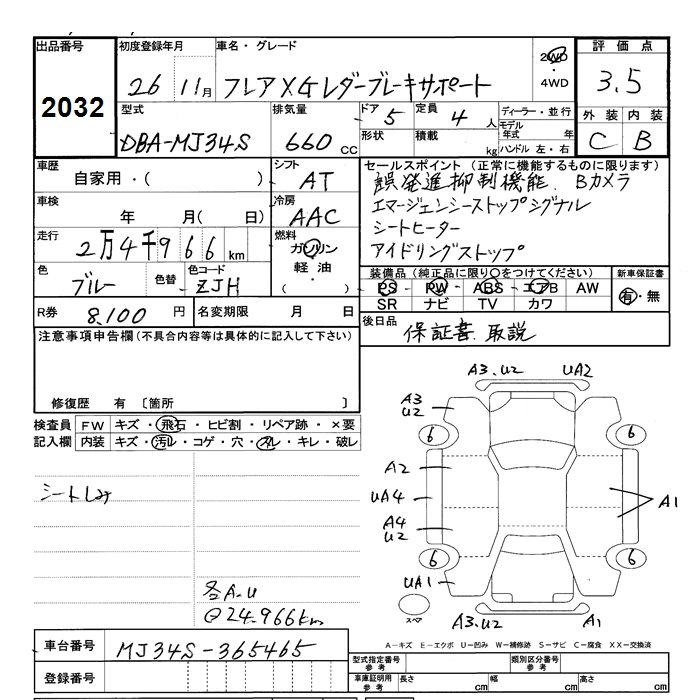 出品番号 初度登録年月 車名・グレード 評価点
2032
26 11月 フレア XG レダーブレーキサポート 2WD ・4WD 3.5
型式 排気量 ドア 5 定員 4人 ディーラー・並行 外装 内装
DBA-MJ34S 660cc 形状 積載 kg モデル年式 年 ハンドル 左・右 C B
車歴 シフト セールスポイント(正常に機能するものに限ります)
自家用・( ) AT 誤発進抑制機能. Bカメラ
車検 冷房 エマージェンシーストップシグナル
年 月( 日) AAC シートヒーター
走行 燃料 アイドリングストップ
2万4千966km ガソリン
軽油・
( )
色 色替 色コード 装備品(純正品に限り○をつけてください) 新車保証書
ブルー ZJH PS PW ABS エアB AW 有・無
SR ナビ TV カワ
R券 8,100円 名変期限 月 日 後日品 保証書. 取説
注意事項申告欄(不具合内容等は具体的に記入して下さい)
修復歴 有 〔箇所 〕
検査員 FW キズ・飛石・ヒビ割・リペア跡・×要
記入欄 内装 キズ・汚レ・コゲ・穴・スレ・キレ・破レ
シートしみ
各A.U
@24.966km
A3.U2 UA2
A3
U2
6 6
A2
UA4 A1
A4
U2
6 6
UA1
スペア
A3.U2 A1
A-キズ E-エクボ U-凹み W-補修跡 S-サビ C-腐食 XX-交換済
車台番号 MJ34S-365465
登録番号
型式指定番号 参考 類別区分番号 参考
車庫証明用 参考 長さ cm 幅 cm 高さ cm